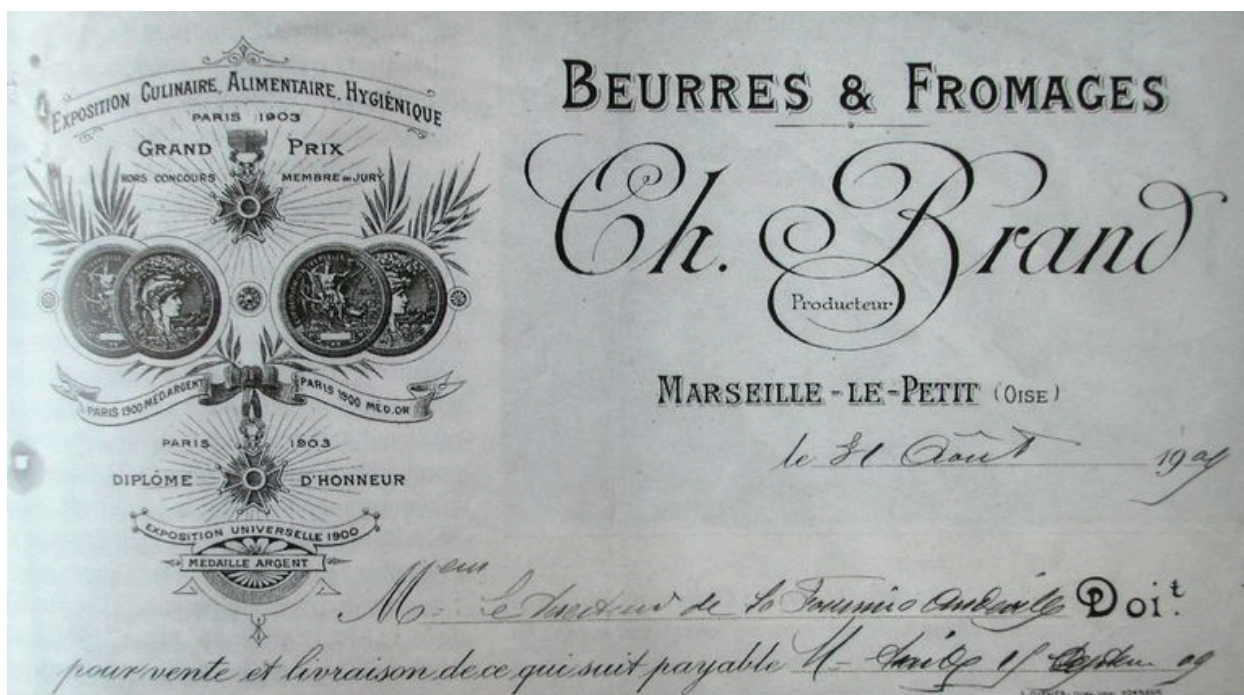 EXPOSITION CULINAIRE, ALIMENTAIRE, HYGIÉNIQUE
PARIS 1903
GRAND PRIX
HORS CONCOURS MEMBRE DU JURY
PARIS 1900 MED. ARGENT PARIS 1900 MED. OR
PARIS 1903
DIPLÔME D'HONNEUR
EXPOSITION UNIVERSELLE 1900
MEDAILLE ARGENT
BEURRES & FROMAGES
Ch. Brand
Producteur
MARSEILLE-LE-PETIT (OISE)
le 31 Août 1909
M eur Le Directeur de la Doit.
pour vente et livraison de ce qui suit payable